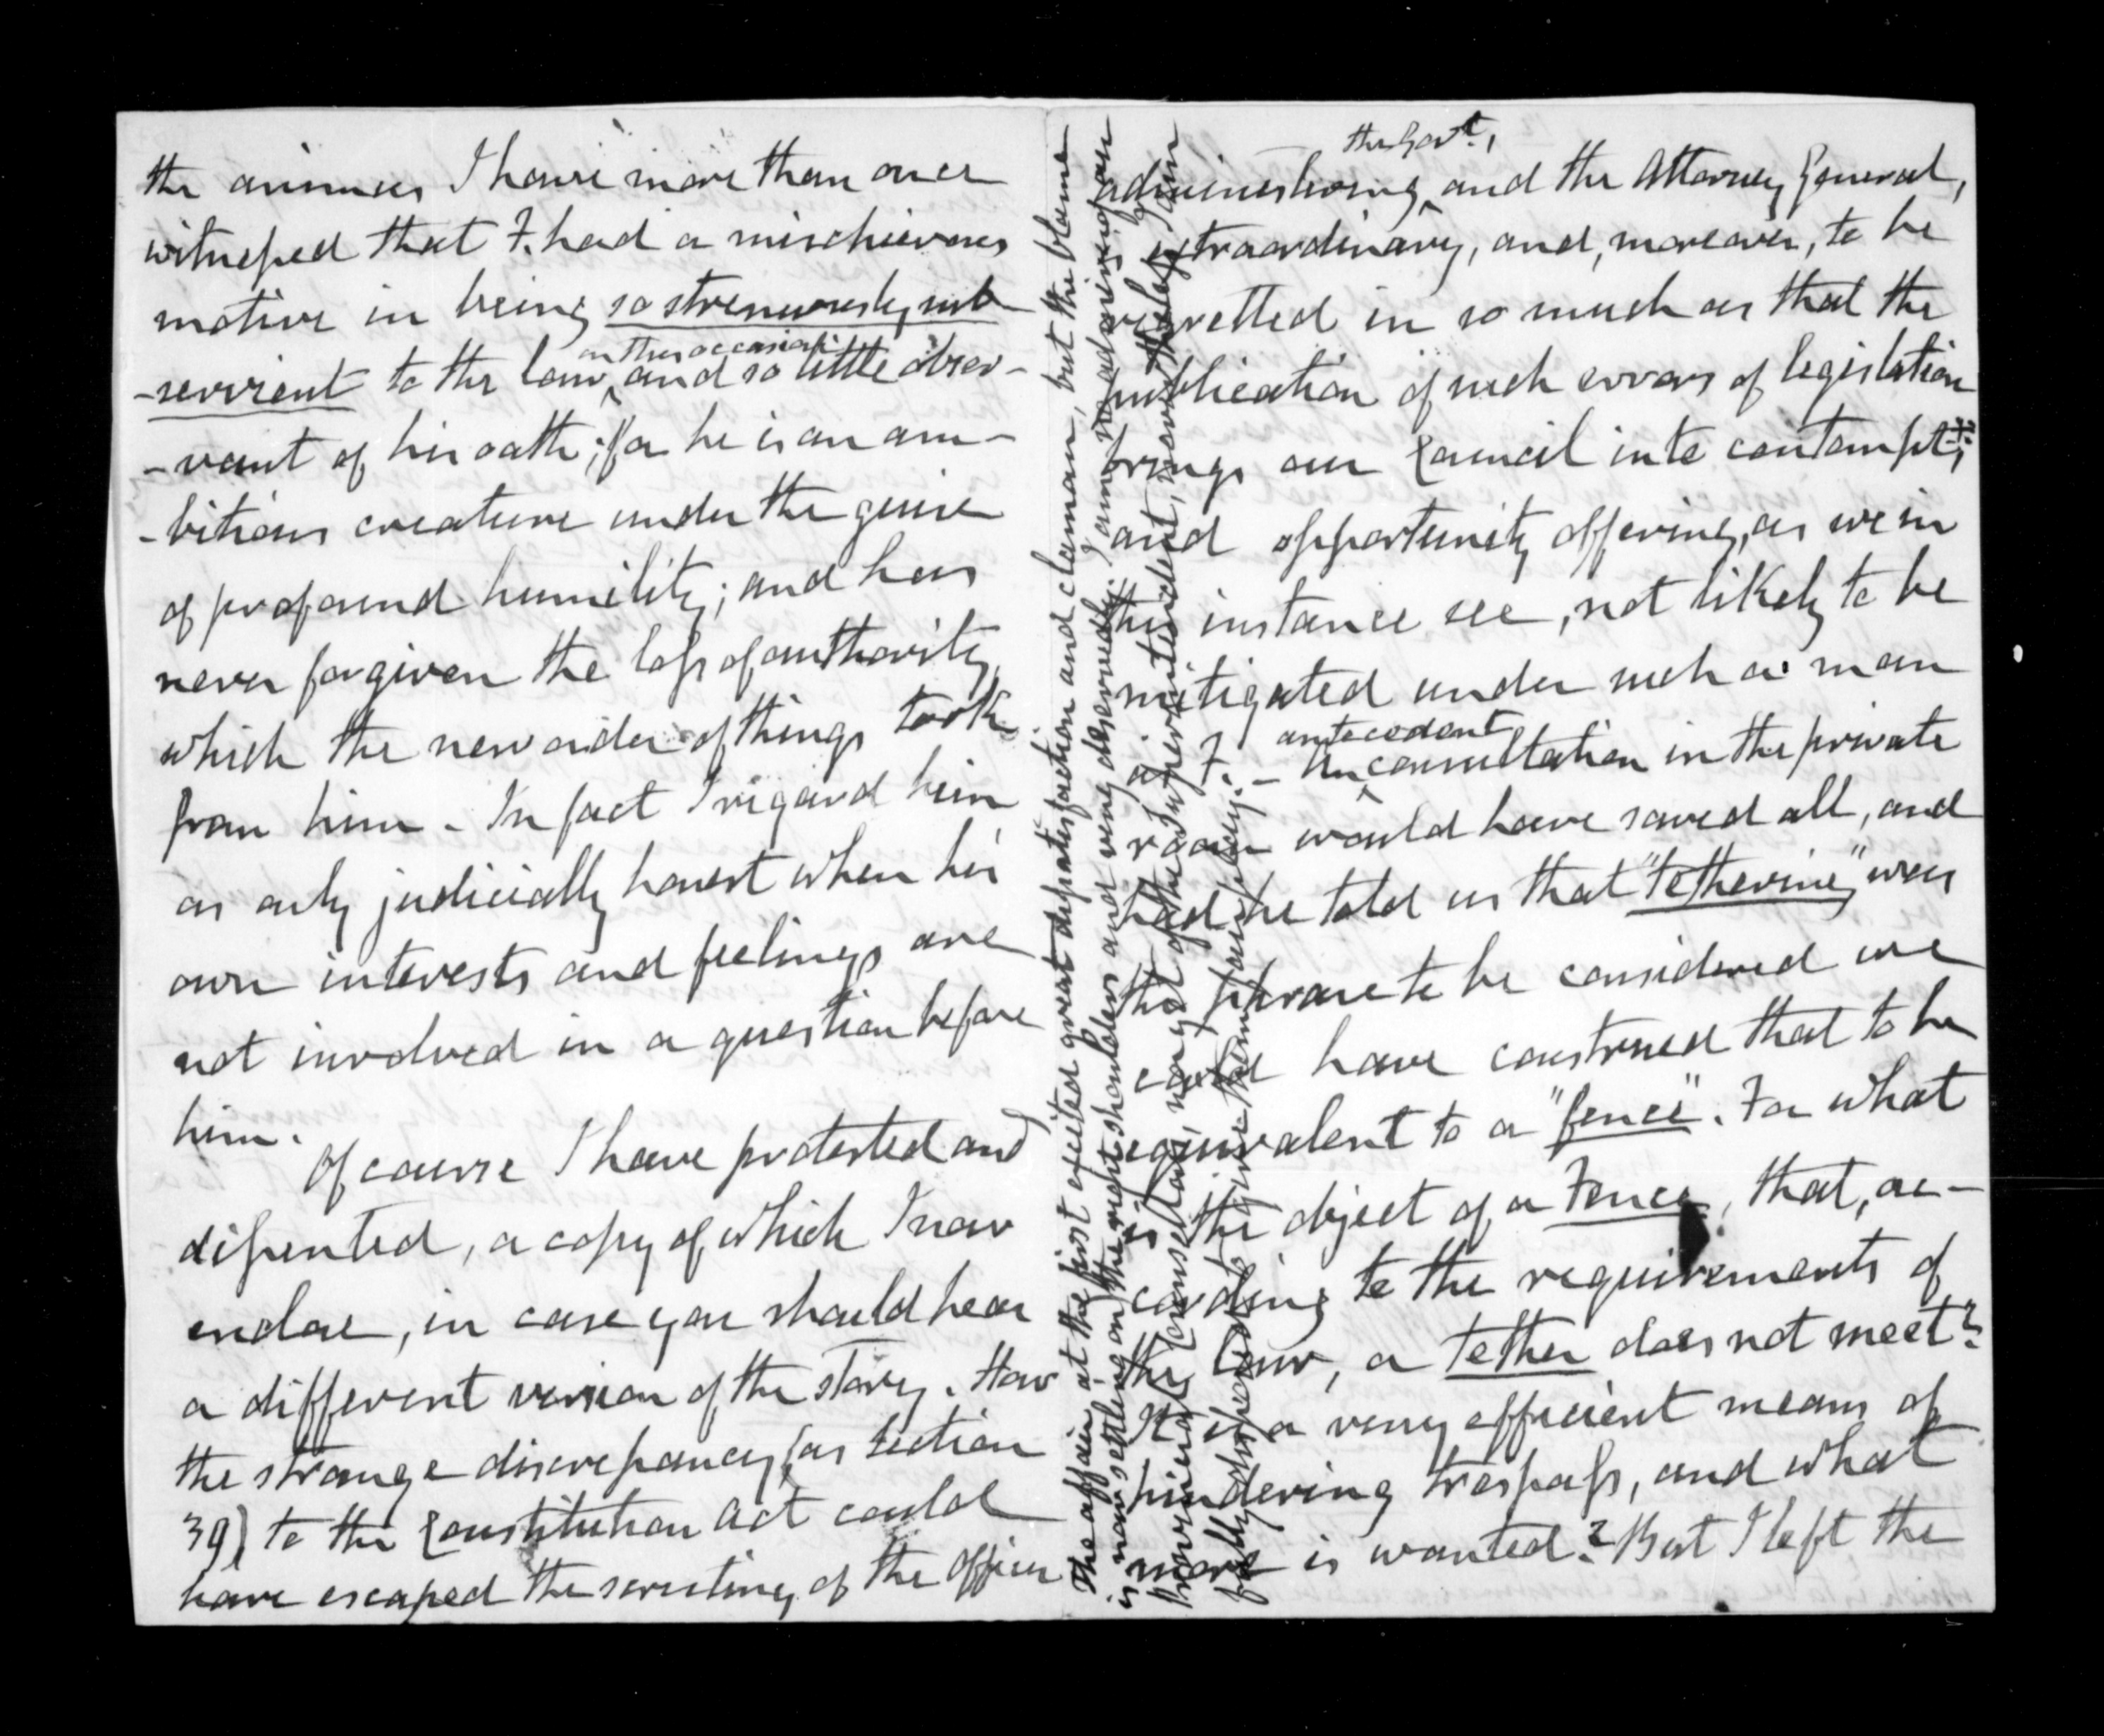 the animus I have more than once
witnessed that F. had a mischievous
motive in being so strenuously sub
-servient to the law on this occasion and so little obser-
-vant of his oath; for he is an am-
-bitious creature under the guise
of profound humility; and has
never forgiven the loss of authority
which the new order of things took
from him - In fact I regard him
as only judicially honest when his
own interests and feelings are
not involved in a question before
him.
Of course I have protested and
dissented, a copy of which I now
enclose, in case you should hear
a different version of the story. How
the strange discrepancy (as section
39) to the Constitution Act could
have escaped the scrutiny of the Officer
administering the Govt., and the Attorney General,
extraordinary, and, moreover, to be
regretted in so much as that the
publication of such errors of legislation
brings our Council into contempt;
and opportunity offering, as we in
this instance see, not likely to be
mitigated under such a man
as F. - An antecedent consultation in the private
room would have saved all, and
had he told us that "tethering" was
the phrase to be considered we
could have construed that to be
equivalent to a "fence". For what
is the object of a Fence, that, ac-
cording to the requirements of
the law, a tether does not meet?
It is a very efficient means of
hindering trespass, and what
more is wanted? But I left the
The affair at the first excited great dissatisfaction and clamour, but the blame
is now settling on the right shoulders and very deservedly. I am no admirer of our
Provincial Councillors, nor yet of the Superintendent, more the less I am
fully disposed to give them fair play.